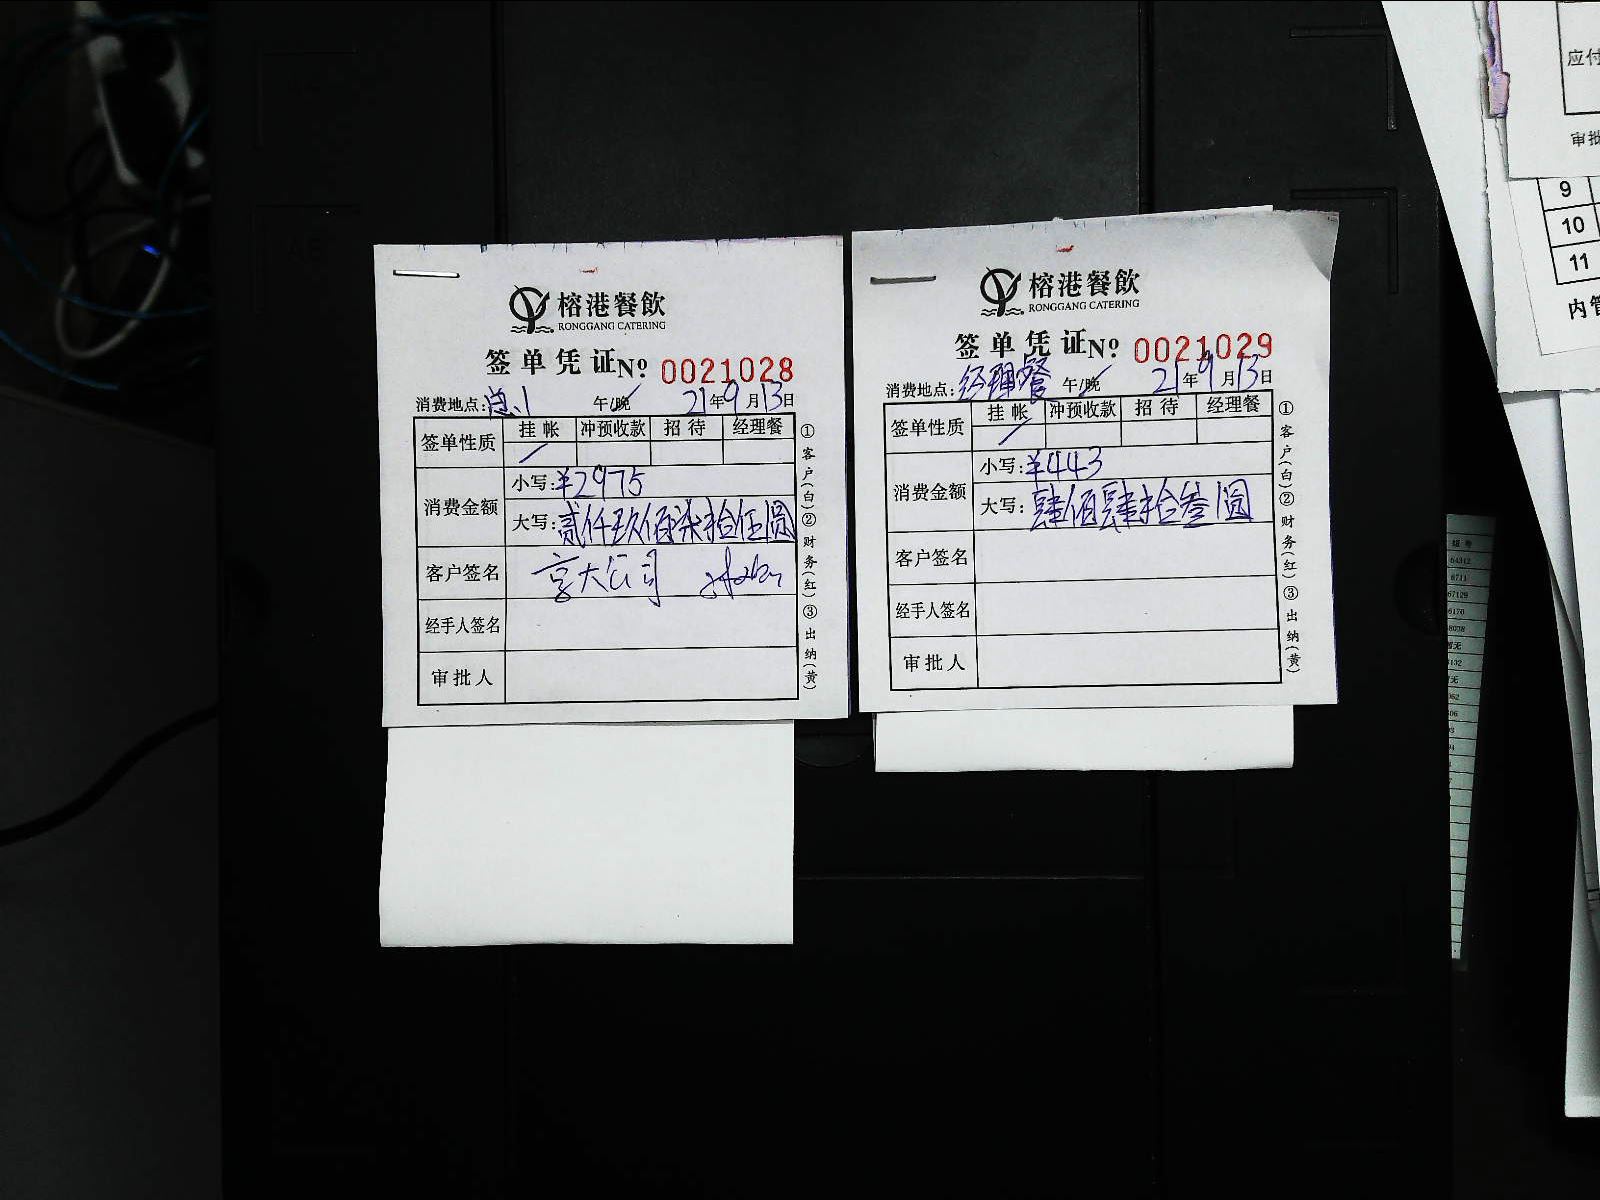 榕港餐飲
RONGGANG CATERING
签单凭证 No 0021028
消费地点: 总.1 午/晚 21年9月13日
签单性质 挂帐 冲预收款 招待 经理餐
消费金额 小写:¥2975
大写:贰仟玖佰柒拾伍圆
客户签名 享大公司
经手人签名
审批人
①客户(白)②财务(红)③出纳(黄)
榕港餐飲
RONGGANG CATERING
签单凭证 No 0021029
消费地点: 经理餐 午/晚 21年9月13日
签单性质 挂帐 冲预收款 招待 经理餐
消费金额 小写:¥443
大写:肆佰肆拾叁圆
客户签名
经手人签名
审批人
①客户(白)②财务(红)③出纳(黄)
应付
审批
9
10
11
内管